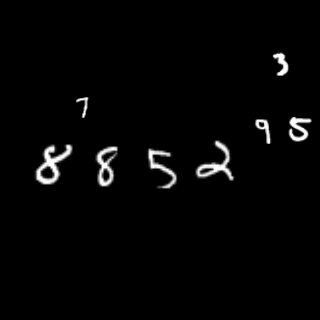 3
7
9 5
8 8 5 2